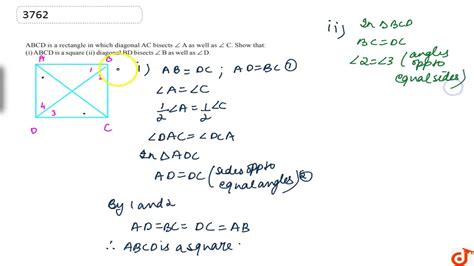 3762
ABCD is a rectangle in which diagonal AC bisects ∠ A as well as ∠ C. Show that:
(i) ABCD is a square (ii) diagonal BD bisects ∠ B as well as ∠ D.
A B
1
2
4 3
D C
i) AB = DC ; AD = BC ①
∠A = ∠C
1/2 ∠A = 1/2 ∠C
∠DAC = ∠DCA
In △ADC
AD = DC (sides opp to equal angles) ②
By 1 and 2
AD = BC = DC = AB
∴ ABCD is a square.
ii) In △BCD
BC = DC
∠2 = ∠3 (angles
opp to
equal sides)